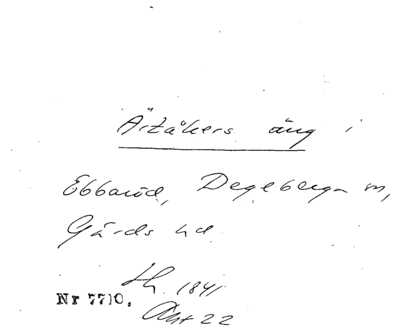 Ärtåkers äng i
Ebbaröd, Degeberga sn,
Gärds hd.
Sk. 1841
Nr 7710. Akt 22